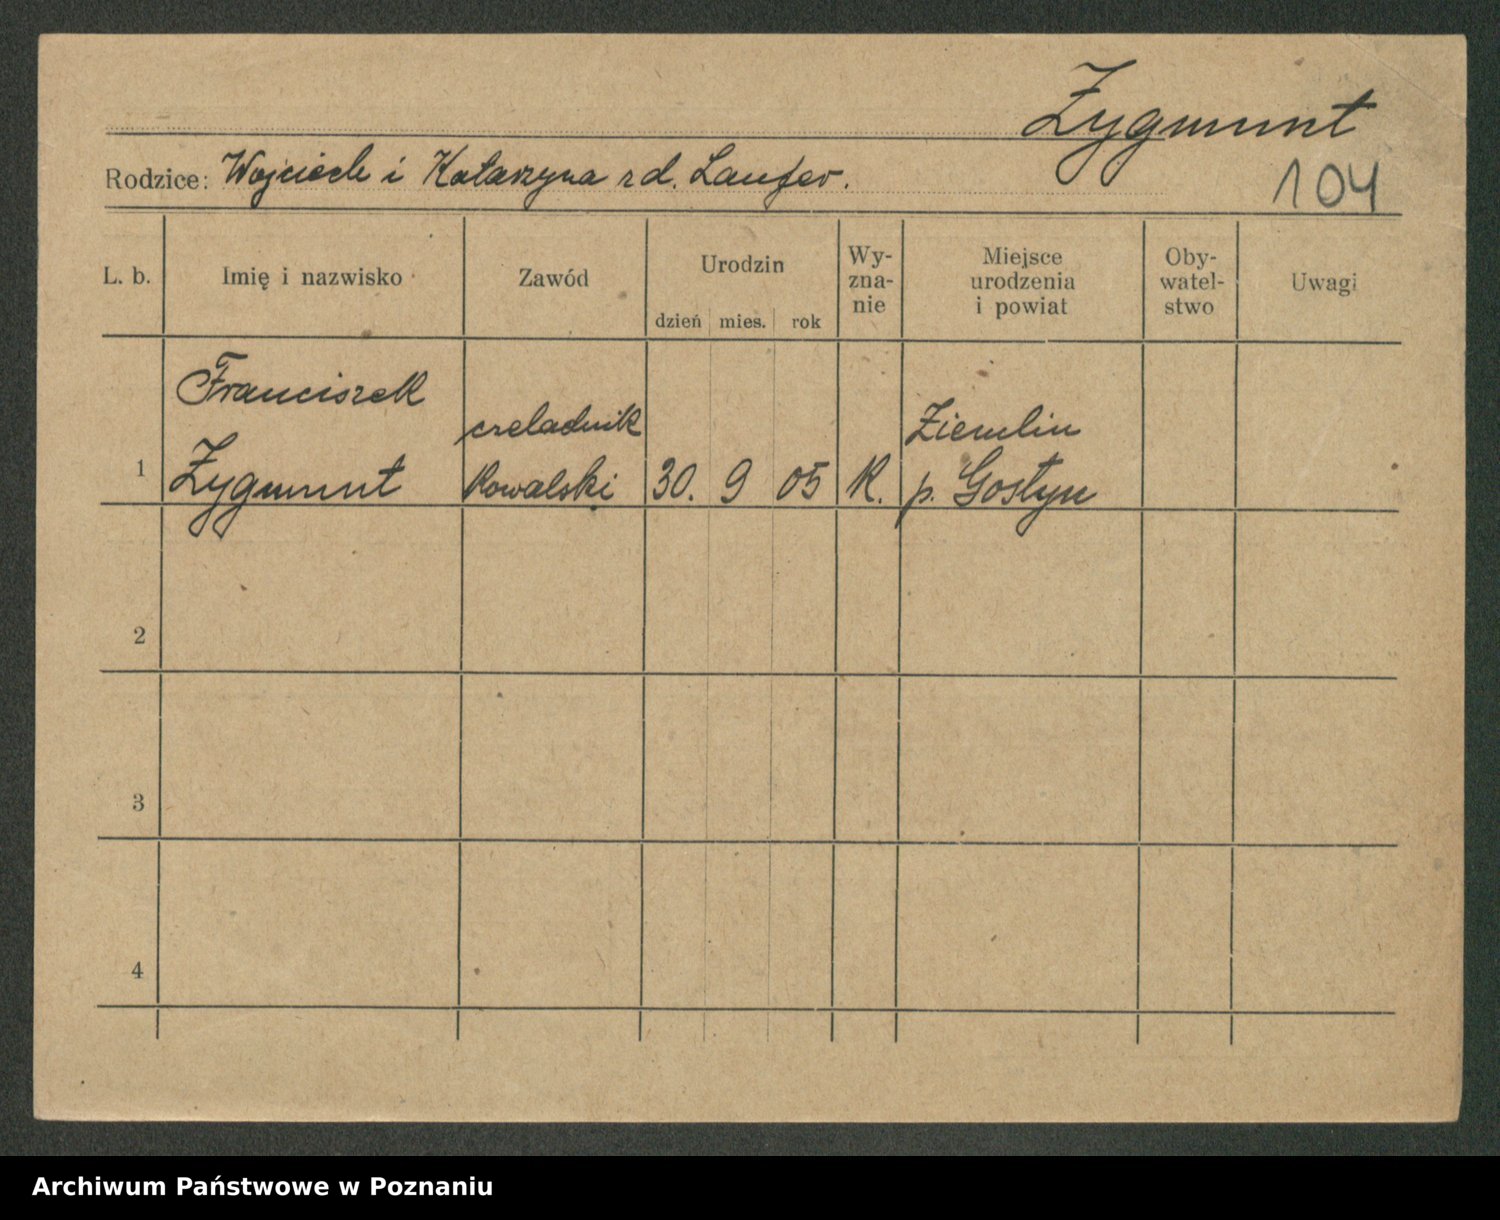 Zygmunt
Rodzice: Wojciech i Katarzyna rd. Laufer.
104
L. b. Imię i nazwisko Zawód Urodzin dzień mies. rok Wy-zna-nie Miejsce urodzenia i powiat Oby-watel-stwo Uwagi
Franciszek
czeladnik Ziemlin
1 Zygmunt Kowalski 30. 9 05 K. p. Gostyn
2
3
4
Archiwum Państwowe w Poznaniu